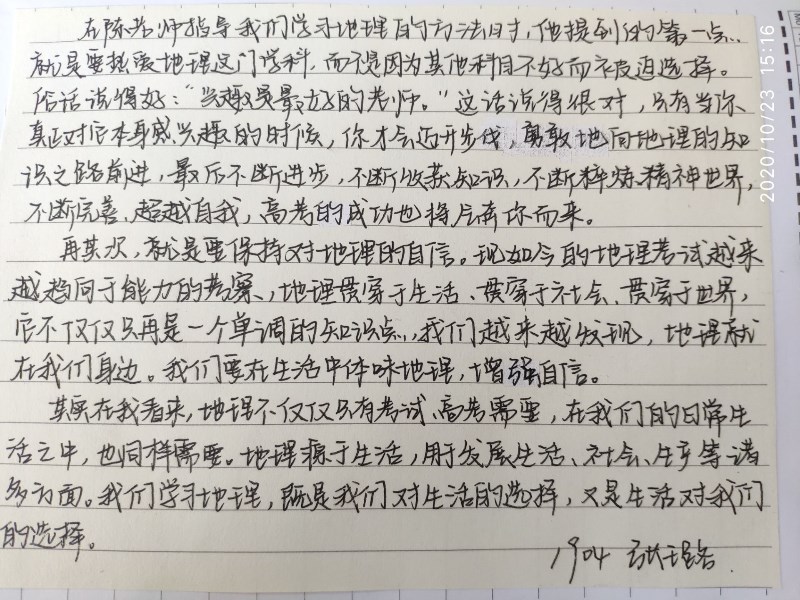 在陈老师指导我们学习地理的方法时，他提到的第一点
就是要热爱地理这门学科，而不是因为其他科目不好而被迫选择。
俗话说得好：“兴趣是最好的老师。”这话说得很对，只有当你
真正对它本身感兴趣的时候，你才会迈开步伐，勇敢地向地理的知
识之路前进，最后不断进步，不断收获知识，不断粹炼精神世界，
不断完善、超越自我，高考的成功也将后奔你而来。
再其次，就是要保持对地理的自信。现如今的地理考试越来
越趋向于能力的考察，地理贯穿于生活、贯穿于社会、贯穿于世界，
它不仅仅只再是一个单调的知识点，我们越来越发现，地理就
在我们身边。我们要在生活中体味地理，增强自信。
其实在我看来，地理不仅仅只有考试、高考需要，在我们的日常生
活之中，也同样需要。地理源于生活，用于发展生活、社会、生产等诸
多方面。我们学习地理，既是我们对生活的选择，又是生活对我们
的选择。
1904 张珞
2020/10/23 15:16